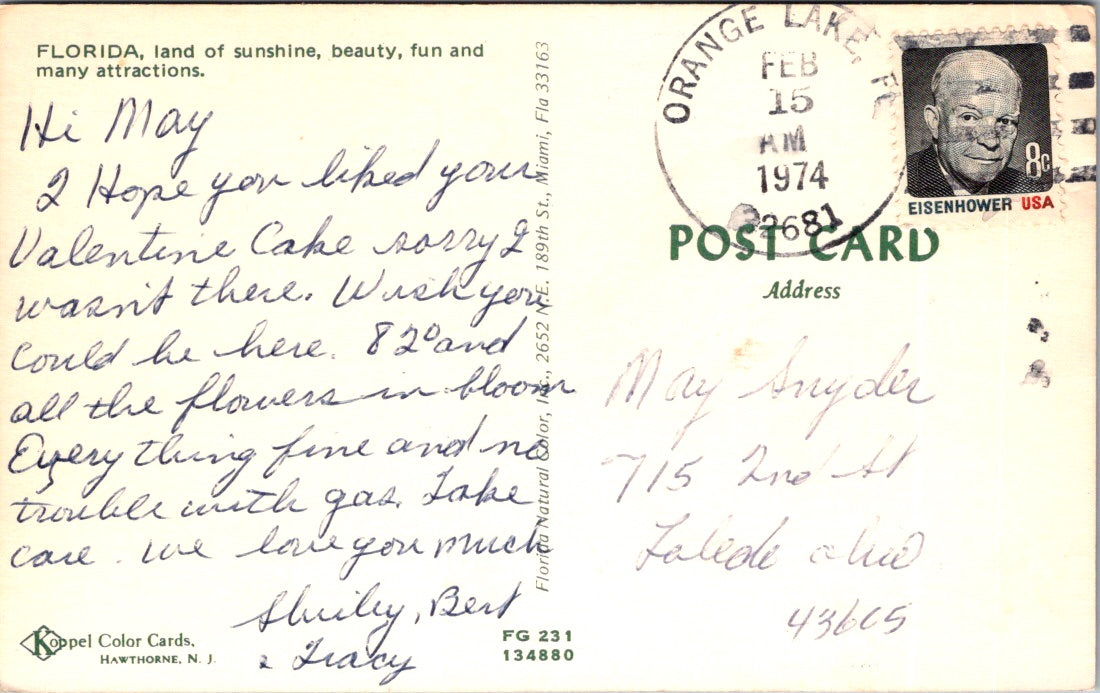 FLORIDA, land of sunshine, beauty, fun and
many attractions.
Hi May
I Hope you liked your
Valentine Cake sorry I
wasn't there. Wish you
could be here. 82° and
all the flowers in bloom
Everything fine and no
trouble with gas. Take
care. we love you much
Shirley, Bert
& Tracy
Koppel Color Cards,
HAWTHORNE, N. J.
FG 231
134880
Florida Natural Color, Inc., 2652 N.E. 189th St., Miami, Fla 33163
ORANGE LAKE, FL
FEB
15
AM
1974
32681
8c
EISENHOWER USA
POST CARD
Address
May Snyder
715 2nd St
Toledo Ohio
43605